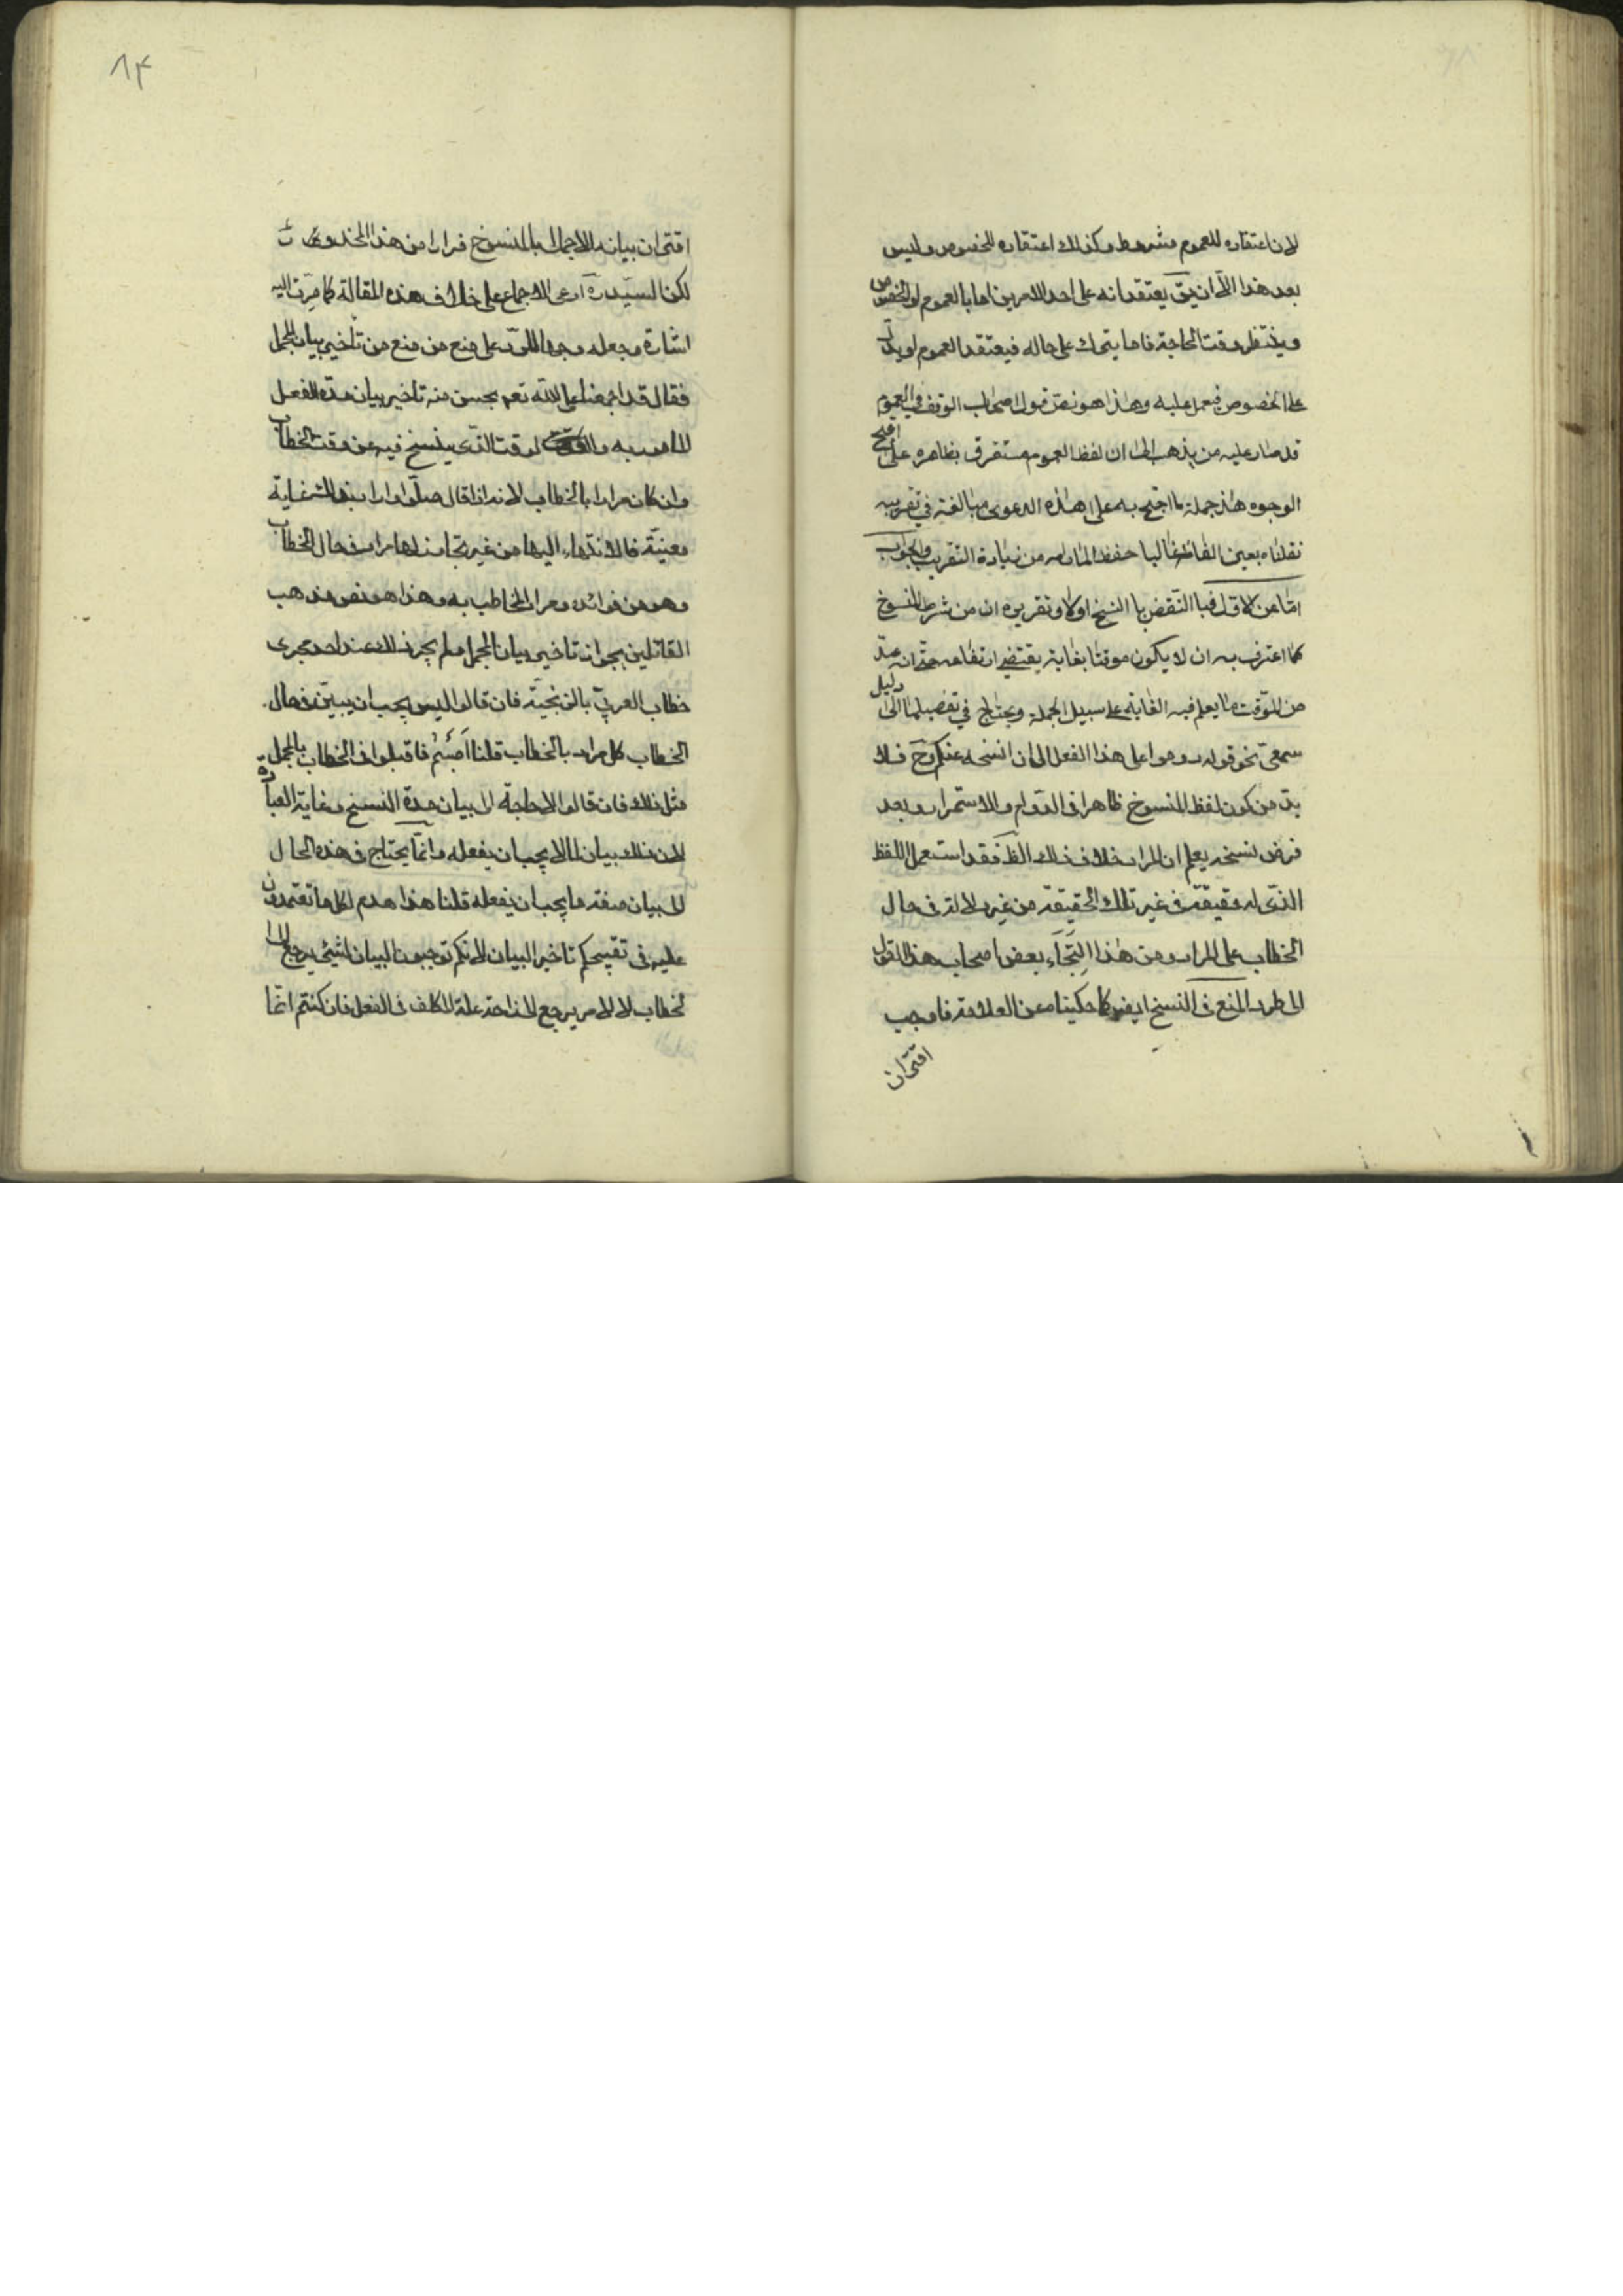 لان اعتقاده للعموم مشروط وكذلك اعتقاده للخصوص وليس
بعد هذا الا ان يقَ يعتقد انه على احد الامرين اما بالعموم او الخصوص
وينتظر وقت الحاجة فاما يترك على حاله فيعتقد العموم او يدل
على الخصوص فيعمل عليه وهذا هو نص قول اصحاب الوقف في العموم
قد صار عليه من يذهب الى ان لفظ العموم مستغرق بظاهره على اقبح
الوجوه هذا جملة ما احتج به على هذه الدعوى مبالغة في تقريبه
نقلناه بعين الفاظه غالبا حفظا لما رامه من زيادة التقريب والجواب
امّا عن الاوّل فبا النّقض با النسخ اوّلا وتقريره ان من شرط المنسوخ
كما اعترف به ان لا يكون موقتا بغاية يقتضي ارتفاعه حتّى انه عدّ
من الموّقت ما يعلم فيه الغاية على سبيل الجملة ويحتاج في تفصيلها الى دليل
سمعى نحو قوله دوموا على هذا الفعل الى ان انسخه عنكم وحَ فلا
بدّ من كون لفظ المنسوخ ظاهرا في الدّوام والاستمرار وبعد
فرض نسخه يعلم ان المراد خلاف ذلك الظَ فقد استعمل اللفظ
الذّى له حقيقة في غير تلك الحقيقة من غير دلالة في حال
الخطاب على المراد ومن هذا التجاء بعض اصحاب هذا القول
الى طرد المنع في النسخ ايضا كما حكيناه عن العلامة فاوجب
اقتران
٨٣
اقتران بيانه الاجمالى بالمنسوخ فرارا من هذا المحذور
لكن السيّد ره ادعى الاجماع على خلاف هذه المقالة كما مرّت اليه
اشارة وجعله وجها للرّد على منع من منع من تاخير بيان المجمل
فقال قد اجمعنا على انّه تعَم يحسن منه تاخير بيان مدّة الفعل
المامور به والوقت الذّى ينسخ فيه عن وقت الخطاب
وان كان مرادا بالخطاب لانه اذا قال صلّوا واراد بذلك غاية
معينّة فالانتهاء اليها من غير تجاوز لها مراد في حال الخطاب
وهو من فوائده ومراد المخاطب به وهذا هو نص مذهب
القائلين بجواز تاخير بيان المجمل ولم يجر ذلك عند احد مجرى
خطاب العربىّ بالزنجيّة فان قالوا ليس يجب ان يبيّن في حال
الخطاب كل مراد بالخطاب قلنا اَصَبْتُمْ فاقبلوا في الخطاب بالمجمل
مثل ذلك فان قالوا لا حاجة الى بيان مدة النسخ وغاية العبادة
لان ذلك بيان لما لا يجب ان يفعله وانّما يحتاج في هذه الحال
الى بيان صفة ما يجب ان يفعله قلنا هذا هدم لكل ما تعتمدون
عليه في تقبيحكم تاخير البيان لانكم توجبون البيان لشئ يرجع الى
الخطاب لا لامر يرجع الى ازاحة علة المكلف في الفعل فان كنتم انّما